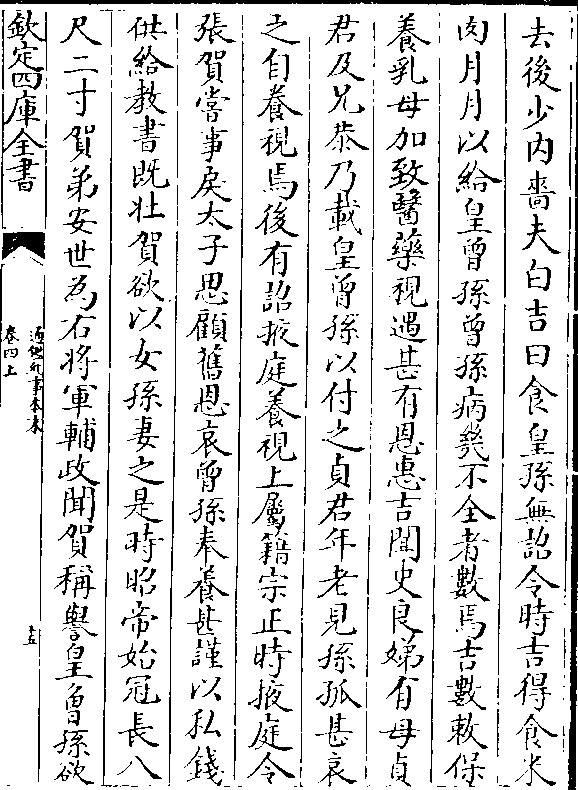 去後少内嗇夫白吉曰食皇孫無詔令時吉得食米
肉月月以給皇曾孫曾孫病幾不全者數焉吉數敕保
養乳母加致醫藥視遇甚有恩惠吉聞史良娣有母貞
君及兄恭乃載皇曾孫以付之貞君年老見孫孤甚哀
之自養視焉後有詔掖庭養視上屬籍宗正時掖庭令
張賀嘗事戾太子思顧舊恩哀曾孫奉養甚謹以私錢
供給教書既壯賀欲以女孫妻之是時昭帝始冠長八
尺二寸賀弟安世為右將軍輔政聞賀稱譽皇曾孫欲
欽定四庫全書
通鑑紀事本末
卷四上
十五